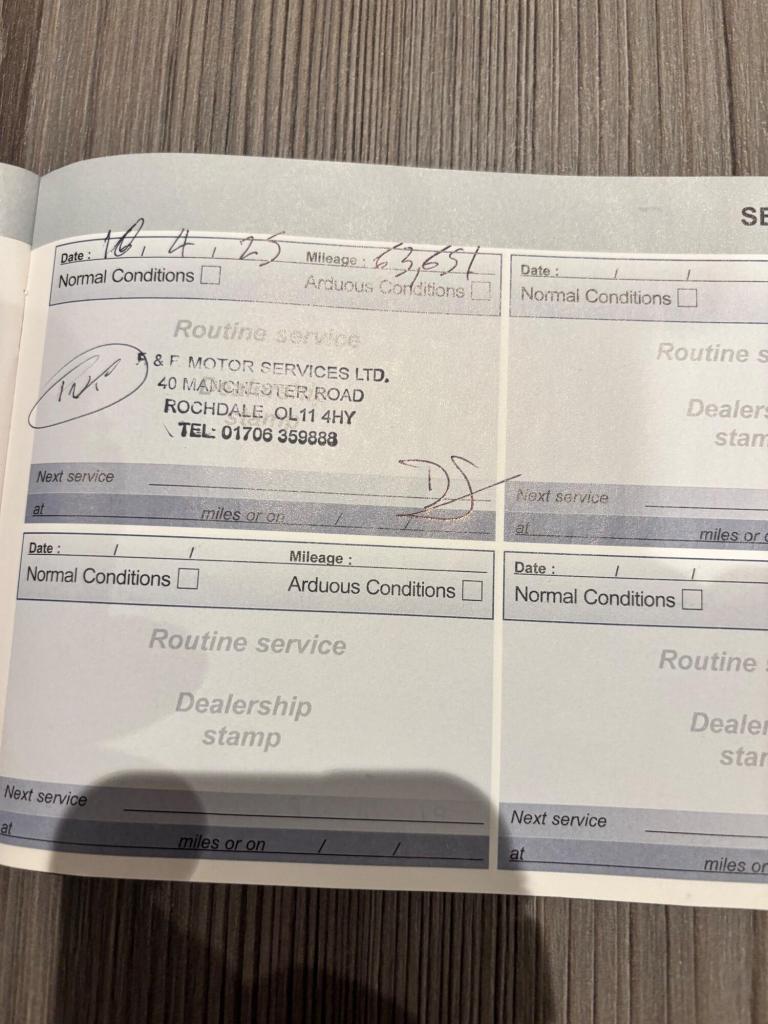 SE
Date : 16 . 4 . 25 Mileage : 63,651
Normal Conditions Arduous Conditions
Routine service
& F. MOTOR SERVICES LTD.
40 MANCHESTER ROAD
ROCHDALE OL11 4HY
TEL: 01706 359888
Dealership
stamp
Next service
at miles or on / /
Date : / /
Normal Conditions
Routine s
Dealers
stam
Next service
at miles or o
Date : / / Mileage :
Normal Conditions Arduous Conditions
Routine service
Dealership
stamp
Next service
at miles or on / /
Date : / /
Normal Conditions
Routine
Dealer
star
Next service
at miles or